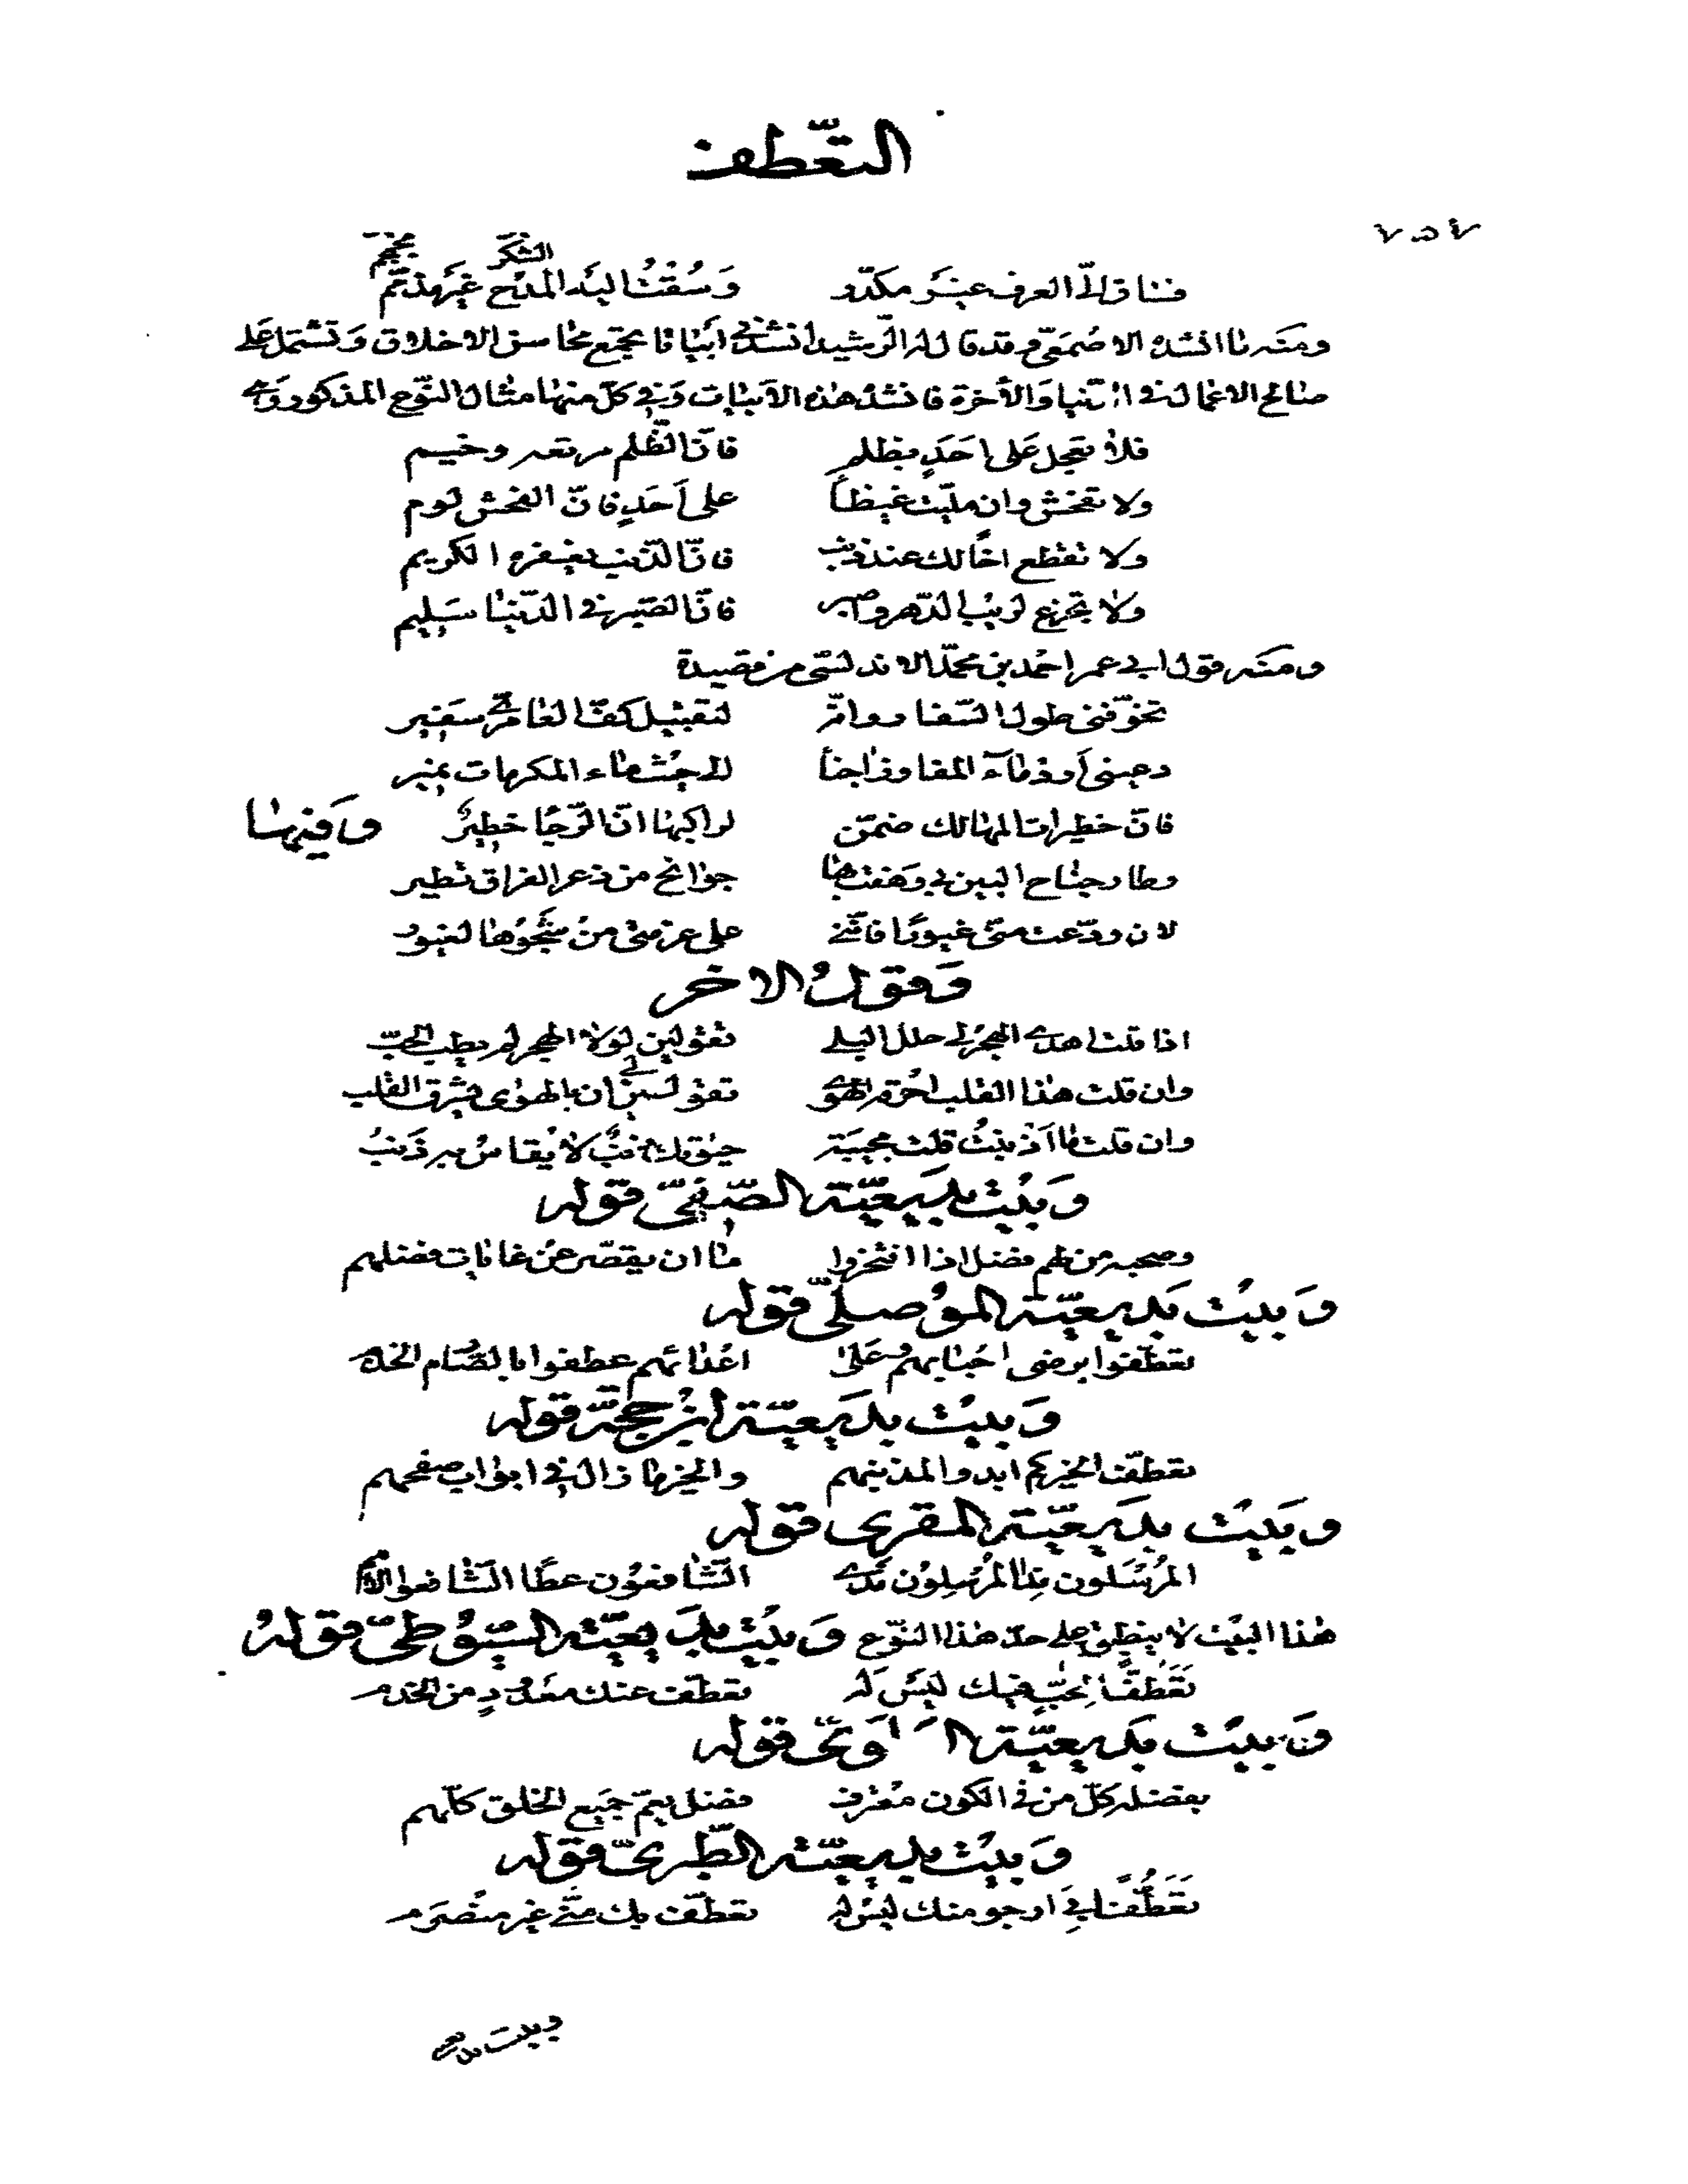 التعطف
٧٥٧
فساق الىّ العرف غير مكدّر وسقت اليه المدح غير مذمّم
الشكر مجمجم
ومنه ما انشده الاصمعي وقد قال له الرّشيد انشدني أبياتا تجمع محاسن الاخلاق وتشتمل على
صالح الاعمال في الدنيا والآخرة فانشد هذه الأبيات وفي كلّ منها مثال النّوع المذكور وهي
فلا تعجل على احدٍ بظلم فانّ الظّلم مرتعه وخيم
ولا تفحش وان ملّيت غيظاً على أحدٍ فانّ الفحش لوم
ولا تقطع اخًا لك عند ذنب فانّ الذّنب يغفره الكريم
ولا تجزع لريب الدّهر واصبر فانّ الصّبر في الدّنيا سليم
ومنه قول ابي عمر احمد بن محمّد الاندلسّي من قصيدة
تخوّفني طول السّفار وانّه لتقبيل كفّ العامريّ سفير
دعيني أرد ماء المفاوز اجناً الى حيث ماء المكرمات نمير
فانّ خطيرات المهالك ضمّن لراكبها انّ الجزاء خطير وفيها
وطار جناح البين بي وهفت بها جوانح من ذعر الفراق تطير
لان ودّعت منّي غيورًا فانّني على عزمتي من شجوها لغيور
وقول الاخر
اذا قلت اهدى الهجر لي حلل البلى تقولين لولا الهجر لم يطب الحبّ
وان قلت هذا القلب احرقه الهوى تقولي لي ان الهوى شرف القلب
وان قلت ما أذنبت قلت مجيبة حيوتك ذنبٌ لا يقاس به ذنبُ
وبيت بديعيّة الصّفيّ قوله
وصحبه من لهم فضل اذا افتخروا ما ان يقصّر عن غايات فضلهم
وبيت بديعيّة الموصلّي قوله
تعطّفوا برضى احبابهم وعلى اعدائهم عطفوا بالصّارم الخذم
وبيت بديعيّة ابن حجّة قوله
تعطّف الخير كم ابدوا لمذنبهم والخير ما زال في ابواب صفحهم
وبيت بديعيّة المقري قوله
المرسلون المرسلون ندى الشّافعون عطا الشّافعوا
هذا البيت لا ينطبق على حدّ هذا النّوع وبيت بديعيّة السّيوطيّ قوله
تعطّفًا لمحبّ فيك ليس له تعطّف عنك معدود من الخدم
وبيت بديعيّة قوله
بفضله كلّ من في الكون معترف فضل يعمّ جميع الخلق كلّهم
وبيت بديعيّة الطّبريّ قوله
تعطّفًا بي ارجو منك ليس له تعطّف بك منّي غير منصرم
وبيت بديعية